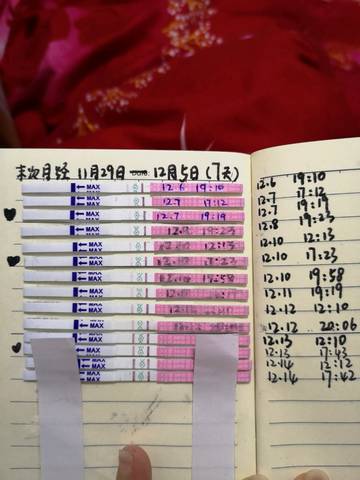 末次月经 11月29日 12月5日(7天)
MAX 12.6 19:10
MAX 12.7 17:12
MAX 12.7 19:19
MAX 12.8 19:23
MAX 12.10 12:13
MAX 12.10 17:23
MAX 12.10 19:58
MAX
MAX
MAX
MAX
MAX
MAX
MAX
12.6 19:10
12.7 17:12
12.7 19:19
12.8 19:23
12.10 12:13
12.10 17:23
12.10 19:58
12.11 19:19
12.12 12:10
12.12 20:06
12.13 12:10
12.13 17:43
12.14 12:12
12.14 17:42